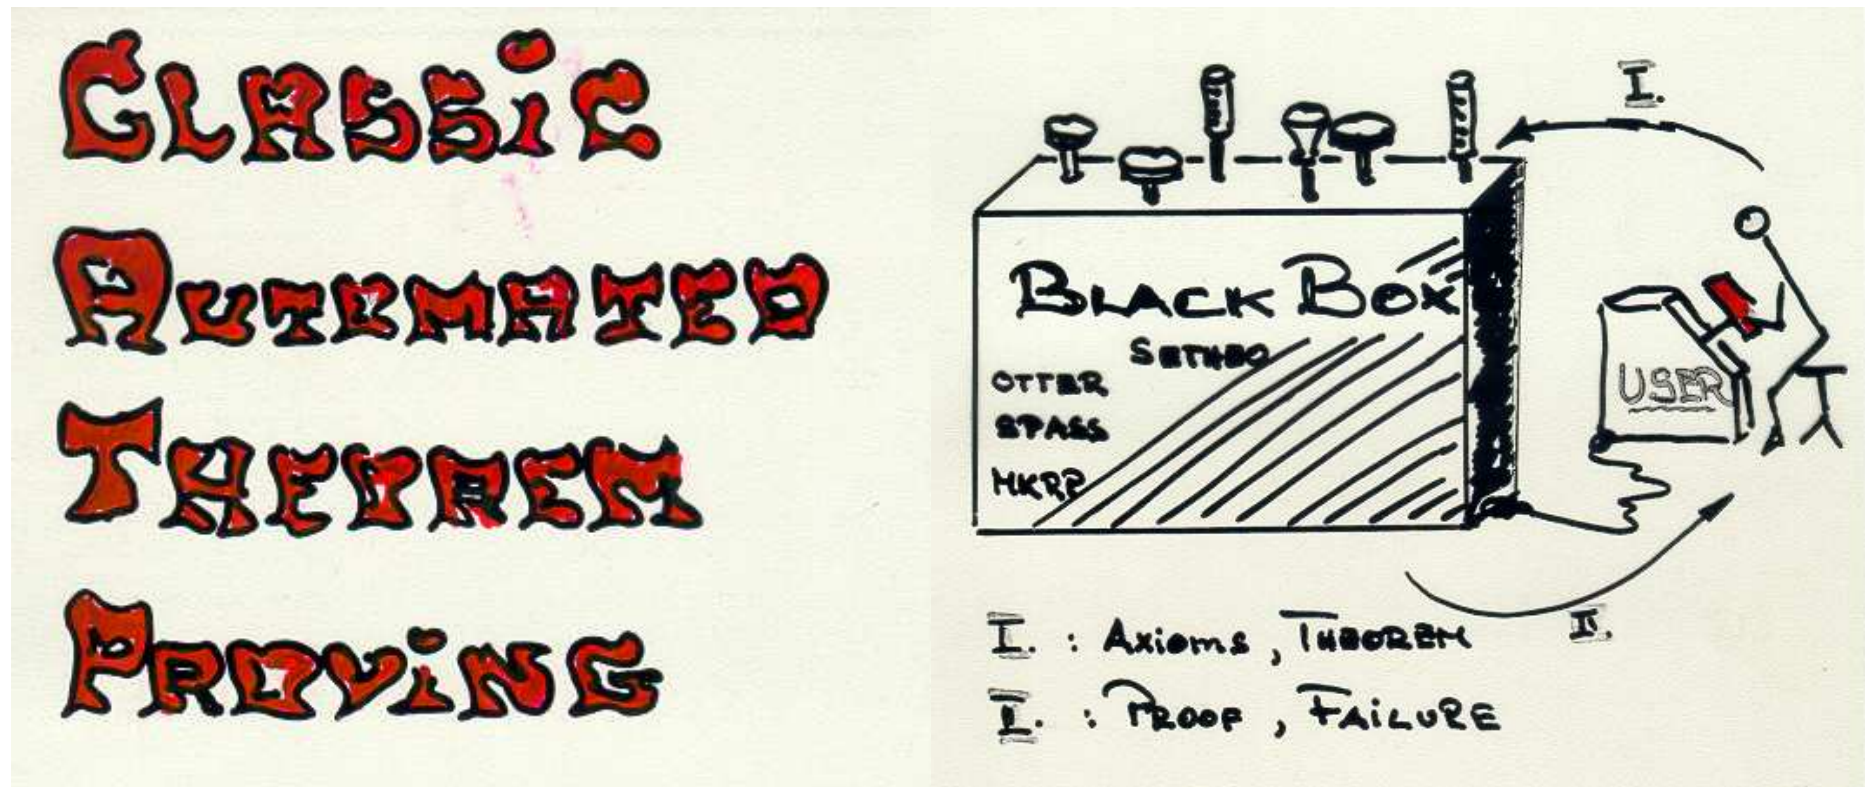 CLASSiC
AUTOMATED
THEOREM
PROViNG
I.
BLACK BOX
SETHEO
OTTER
SPASS
MKRP
USER
II.
I. : Axioms, THEOREM
II. : PROOF, FAiLURE